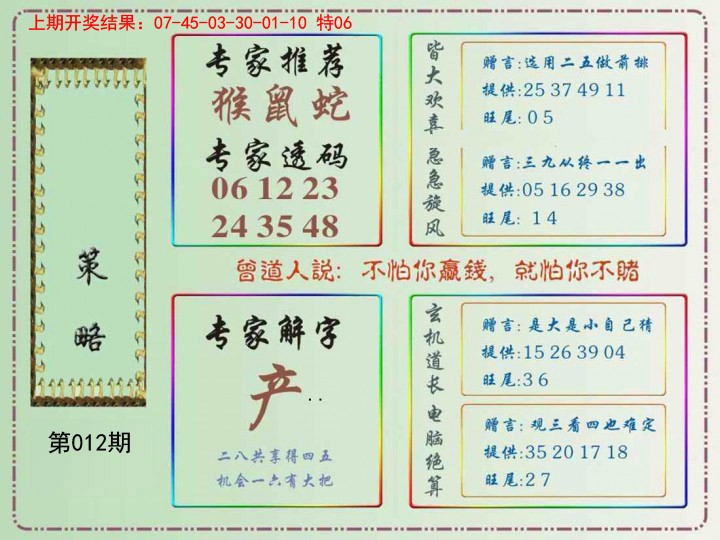 上期开奖结果：07-45-03-30-01-10 特06
策略
第012期
专家推荐
猴鼠蛇
专家透码
06 12 23
24 35 48
皆大欢喜
赠言:选用二五做前排
提供:25 37 49 11
旺尾:0 5
急急旋风
赠言:三九从终一一出
提供:05 16 29 38
旺尾: 1 4
曾道人説: 不怕你赢錢, 就怕你不賭
专家解字
产..
二八共享得四五
机会一六有大把
玄机道长
赠言: 是大是小自己猜
提供:15 26 39 04
旺尾:3 6
电脑绝算
赠言: 观三看四也难定
提供:35 20 17 18
旺尾:2 7